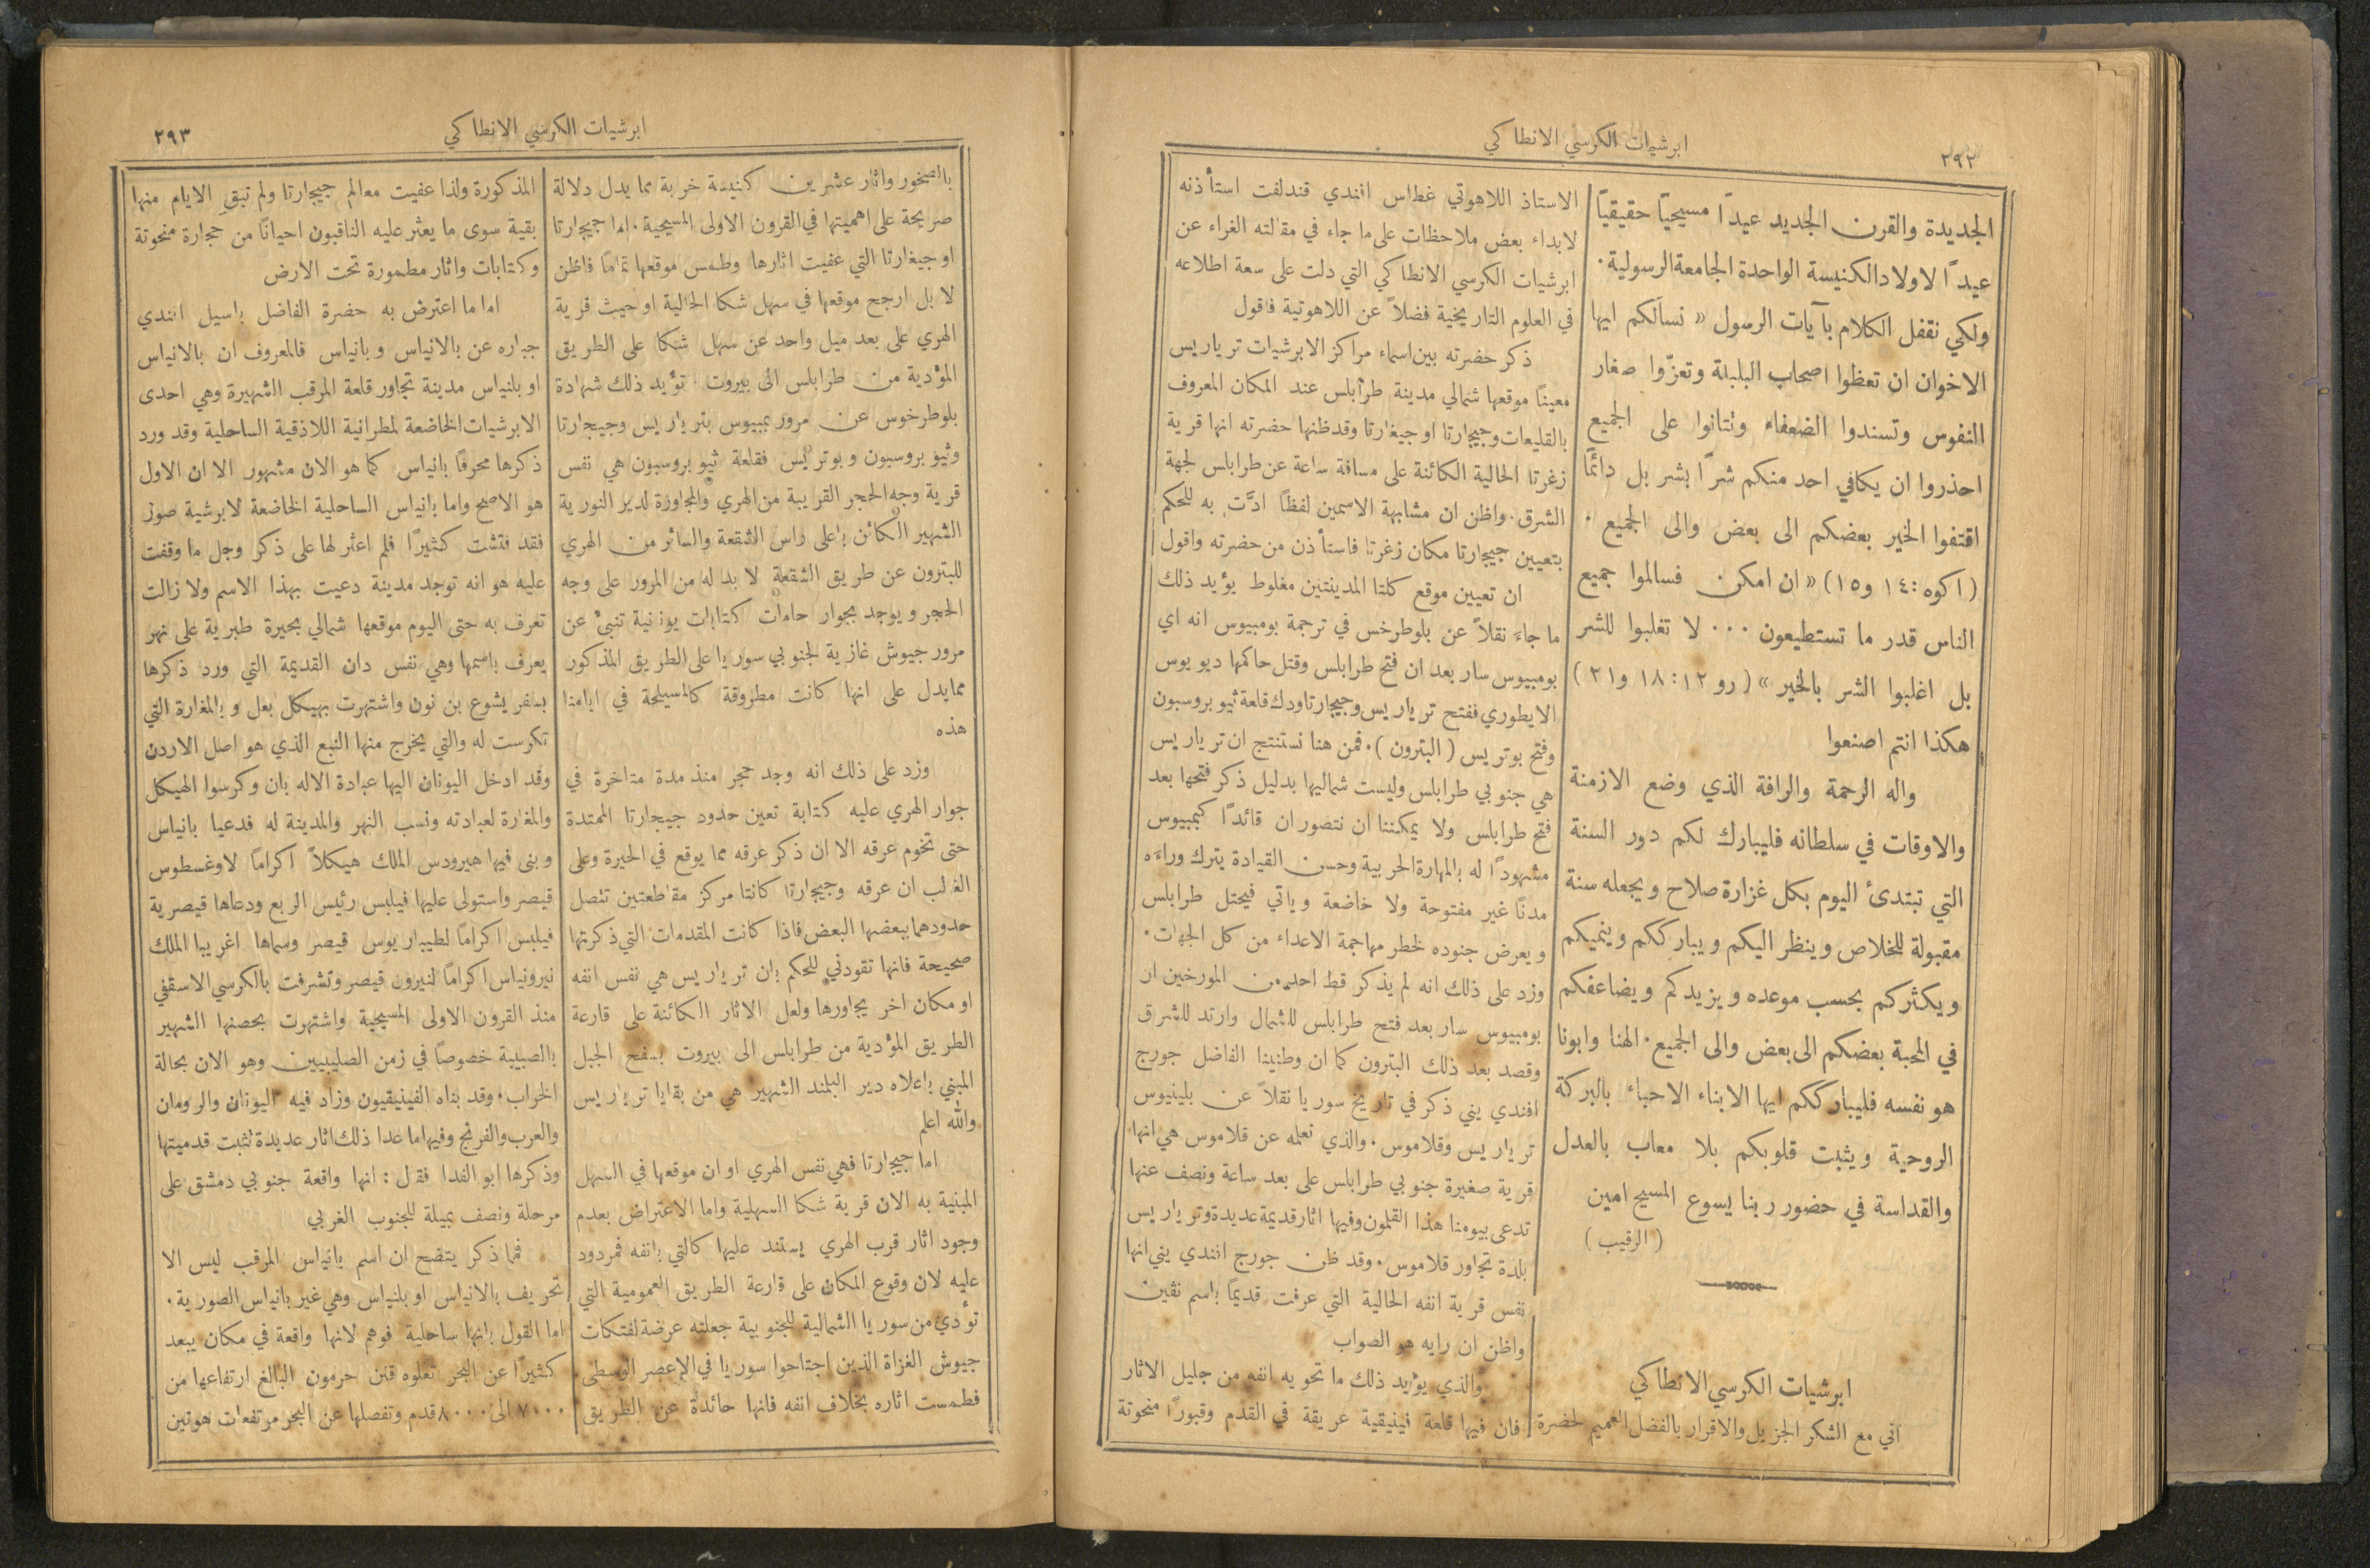 ابرشيات الكرسي الانطاكي
٢٩٢
الجديدة والقرن الجديد عيدًا مسيحيًّا حقيقيًّا
عيدًا لاولاد الكنيسة الواحدة الجامعة الرسولية.
ولكي نقفل الكلام بآيات الرسول « نسألكم ايها
الاخوان ان تعظوا اصحاب البلبلة وتعزّوا صغار
النفوس وتسندوا الضعفاء وتتانوا على الجميع
احذروا ان يكافي احد منكم شرًا بشر بل دائمًا
اقتفوا الخير بعضكم الى بعض والى الجميع .
(١ كو٥: ١٤ و١٥) « ان امكن فسالموا جميع
الناس قدر ما تستطيعون ... لا تغلبوا للشر
بل اغلبوا الشر بالخير » ( رو ١٢: ١٨ و٢١ )
هكذا انتم اصنعوا
واله الرحمة والرافة الذي وضع الازمنة
والاوقات في سلطانه فليبارك لكم دور السنة
التي تبتدئ اليوم بكل غزارة صلاح ويجعله سنة
مقبولة للخلاص وينظر اليكم ويبارككم وينميكم
ويكثركم بحسب موعده ويزيدكم ويضاعفكم
في المحبة بعضكم الى بعض والى الجميع. الهنا وابونا
هو نفسه فليبارككم ايها الابناء الاحباء بالبركة
الروحية ويثبت قلوبكم بلا معاب بالعدل
والقداسة في حضور ربنا يسوع المسيح امين
( الرقيب )
ابرشيات الكرسي الانطاكي
اني مع الشكر الجزيل والاقرار بالفضل العميم لحضرة
الاستاذ اللاهوتي غطاس افندي قندلفت استأذنه
لابداء بعض ملاحظات على ما جاء في مقالته الغراء عن
ابرشيات الكرسي الانطاكي التي دلت على سعة اطلاعه
في العلوم التاريخية فضلاً عن اللاهوتية فاقول
ذكر حضرته بين اسماء مراكز الابرشيات ترياريس
معينًا موقعها شمالي مدينة طرابلس عند المكان المعروف
بالقليعات وجيجارتا او جيغارتا وقد ظنها حضرته انها قرية
زغرتا الحالية الكائنة على مسافة ساعة عن طرابلس لجهة
الشرق. واظن ان مشابهة الاسمين لفظًا ادَّت به للحكم
بتعيين جيجارتا مكان زغرتا فاستأذن من حضرته واقول
ان تعيين موقع كلتا المدينتين مغلوط يؤيد ذلك
ما جاءَ نقلاً عن بلوطرخس في ترجمة بومبيوس انه اي
بومبيوس سار بعد ان فتح طرابلس وقتل حاكمها ديويوس
الايطوري ففتح ترياريس وجيجارتا ودك قلعة ثيوبروسبون
وفتح بوتريس ( البترون ). فمن هنا نستنتج ان ترياريس
هي جنوبي طرابلس وليست شماليها بدليل ذكر فتحها بعد
فتح طرابلس ولا يمكننا ان نتصور ان قائدًا كبمبيوس
مشهودًا له بالمهارة الحربية وحسن القيادة يترك وراءَه
مدنًا غير مفتوحة ولا خاضعة وياتي فيحتل طرابلس
ويعرض جنوده لخطر مهاجمة الاعداء من كل الجهات.
وزد على ذلك انه لم يذكر قط احد من المورخين ان
بومبيوس سار بعد فتح طرابلس للشمال وارتد للشرق
وقصد بعد ذلك البترون كما ان وطنينا الفاضل جورج
افندي يني ذكر في تاريخ سوريا نقلاً عن بلينيوس
ترياريس وقلاموس. والذي نعلمه عن قلاموس هي انها
قرية صغيرة جنوبي طرابلس على بعد ساعة ونصف عنها
تدعى بيومنا هذا القلمون وفيها اثار قديمة عديدة وترياريس
بلدة تجاور قلاموس. وقد ظن جورج افندي يني انها
نفس قرية انفه الحالية التي عرفت قديمًا باسم نڤين
واظن ان رايه هو الصواب
والذي يؤيد ذلك ما تحويه انفه من جليل الاثار
فان فيها قلعة فينيقية عريقة في القدم وقبورًا منحوتة
ابرشيات الكرسي الانطاكي
٢٩٣
بالصخور واثار عشرين كنيسة خربة مما يدل دلالة
صريحة على اهميتها في القرون الاولى المسيحية. اما جيجارتا
او جيغارتا التي عفيت اثارها وطمس موقعها تمامًا فاظن
لا بل ارجح موقعها في سهل شكا الحالية او حيث قرية
الهري على بعد ميل واحد عن سهل شكا على الطريق
المؤدية من طرابلس الى بيروت . تؤيد ذلك شهادة
بلوطرخوس عن مرور بمبيوس بترياريس وجيجارتا
وثيو بروسبون وبوتريس فقلعة ثيو بروسبون هي نفس
قرية وجه الحجر القريبة من الهري والمجاورة لدير النورية
الشهير الكائن باعلى راس الشقعة والسائر من الهري
للبترون عن طريق الشقعة لا بد له من المرور على وجه
الحجر ويوجد بجوار حامات كتابات يونانية تنبئ عن
مرور جيوش غازية لجنوبي سوريا على الطريق المذكور
مما يدل على انها كانت مطروقة كالمسيلحة في ايامنا
هذه
وزد على ذلك انه وجد حجر منذ مدة متاخرة في
جوار الهري عليه كتابة تعين حدود جيجارتا الممتدة
حتى تخوم عرقه الا ان ذكر عرقه مما يوقع في الحيرة وعلى
الغالب ان عرقه وجيجارتا كانتا مركز مقاطعتين تتصل
حدودهما ببعضها البعض فاذا كانت المقدمات التي ذكرتها
صحيحة فانها تقودني للحكم بان ترياريس هي نفس انفه
او مكان اخر يجاورها ولعل الاثار الكائنة على قارعة
الطريق المؤدية من طرابلس الى بيروت بسفح الجبل
المبني باعلاه دير البلمند الشهير هي من بقايا ترياريس
والله اعلم
اما جيجارتا فهي نفس الهري او ان موقعها في السهل
المبنية به الان قرية شكا السهلية واما الاعتراض بعدم
وجود اثار قرب الهري يستند عليها كالتي بانفه فمردود
عليه لان وقوع المكان على قارعة الطريق العمومية التي
تؤدي من سوريا الشمالية للجنوبية جعلته عرضة لفتكات
جيوش الغزاة الذين اجتاحوا سوريا في الاعصر الوسطى
فطمست اثاره بخلاف انفه فانها حائدة عن الطريق
المذكورة ولذا عفيت معالم جيجارتا ولم تبقِ الايام منها
بقية سوى ما يعثر عليه الناقبون احيانًا من حجارة منحوتة
وكتابات واثار مطمورة تحت الارض
اما ما اعترض به حضرة الفاضل باسيل افندي
جباره عن بالانياس وبانياس فالمعروف ان بالانياس
او بلنياس مدينة تجاور قلعة المرقب الشهيرة وهي احدى
الابرشيات الخاضعة لمطرانية اللاذقية الساحلية وقد ورد
ذكرها محرفًا بانياس كما هو الان مشهور الا ان الاول
هو الاصح واما بانياس الساحلية الخاضعة لابرشية صور
فقد فتشت كثيرًا فلم اعثر لها على ذكر وجل ما وقفت
عليه هو انه توجد مدينة دعيت بهذا الاسم ولا زالت
تعرف به حتى اليوم موقعها شمالي بحيرة طبرية على نهر
يعرف باسمها وهي نفس دان القديمة التي ورد ذكرها
بسفر يشوع بن نون واشتهرت بهيكل بعل وبالمغارة التي
تكرست له والتي يخرج منها النبع الذي هو اصل الاردن
وقد ادخل اليونان اليها عبادة الاله بان وكرسوا الهيكل
والمغارة لعبادته ونسب النهر والمدينة له فدعيا بانياس
وبنى فيها هيرودس الملك هيكلاً اكرامًا لاوغسطوس
قيصر واستولى عليها فيلبس رئيس الربع ودعاها قيصرية
فيلبس اكرامًا لطيباريوس قيصر وسماها اغريبا الملك
نيرونياس اكرامًا لنيرون قيصر وتشرفت بالكرسي الاسقفي
منذ القرون الاولى المسيحية واشتهرت بحصنها الشهير
بالصبيبة خصوصًا في زمن الصليبيين وهو الان بحالة
الخراب. وقد بناه الفينيقيون وزاد فيه اليونان والرومان
والعرب والفرنج وفيها ما عدا ذلك اثار عديدة تثبت قدميتها
وذكرها ابو الفدا فقال : انها واقعة جنوبي دمشق على
مرحلة ونصف بميلة للجنوب الغربي
فما ذكر يتضح ان اسم بانياس المرقب ليس الا
تحريف بالانياس او بلنياس وهي غير بانياس الصورية.
اما القول بانها ساحلية فوهم لانها واقعة في مكان يبعد
كثيرًا عن البحر تعلوه قنن حرمون البالغ ارتفاعها من
٧١٠٠ الى ٨٠٠٠ قدم وتفصلها عن البحر مرتفعات هوتين